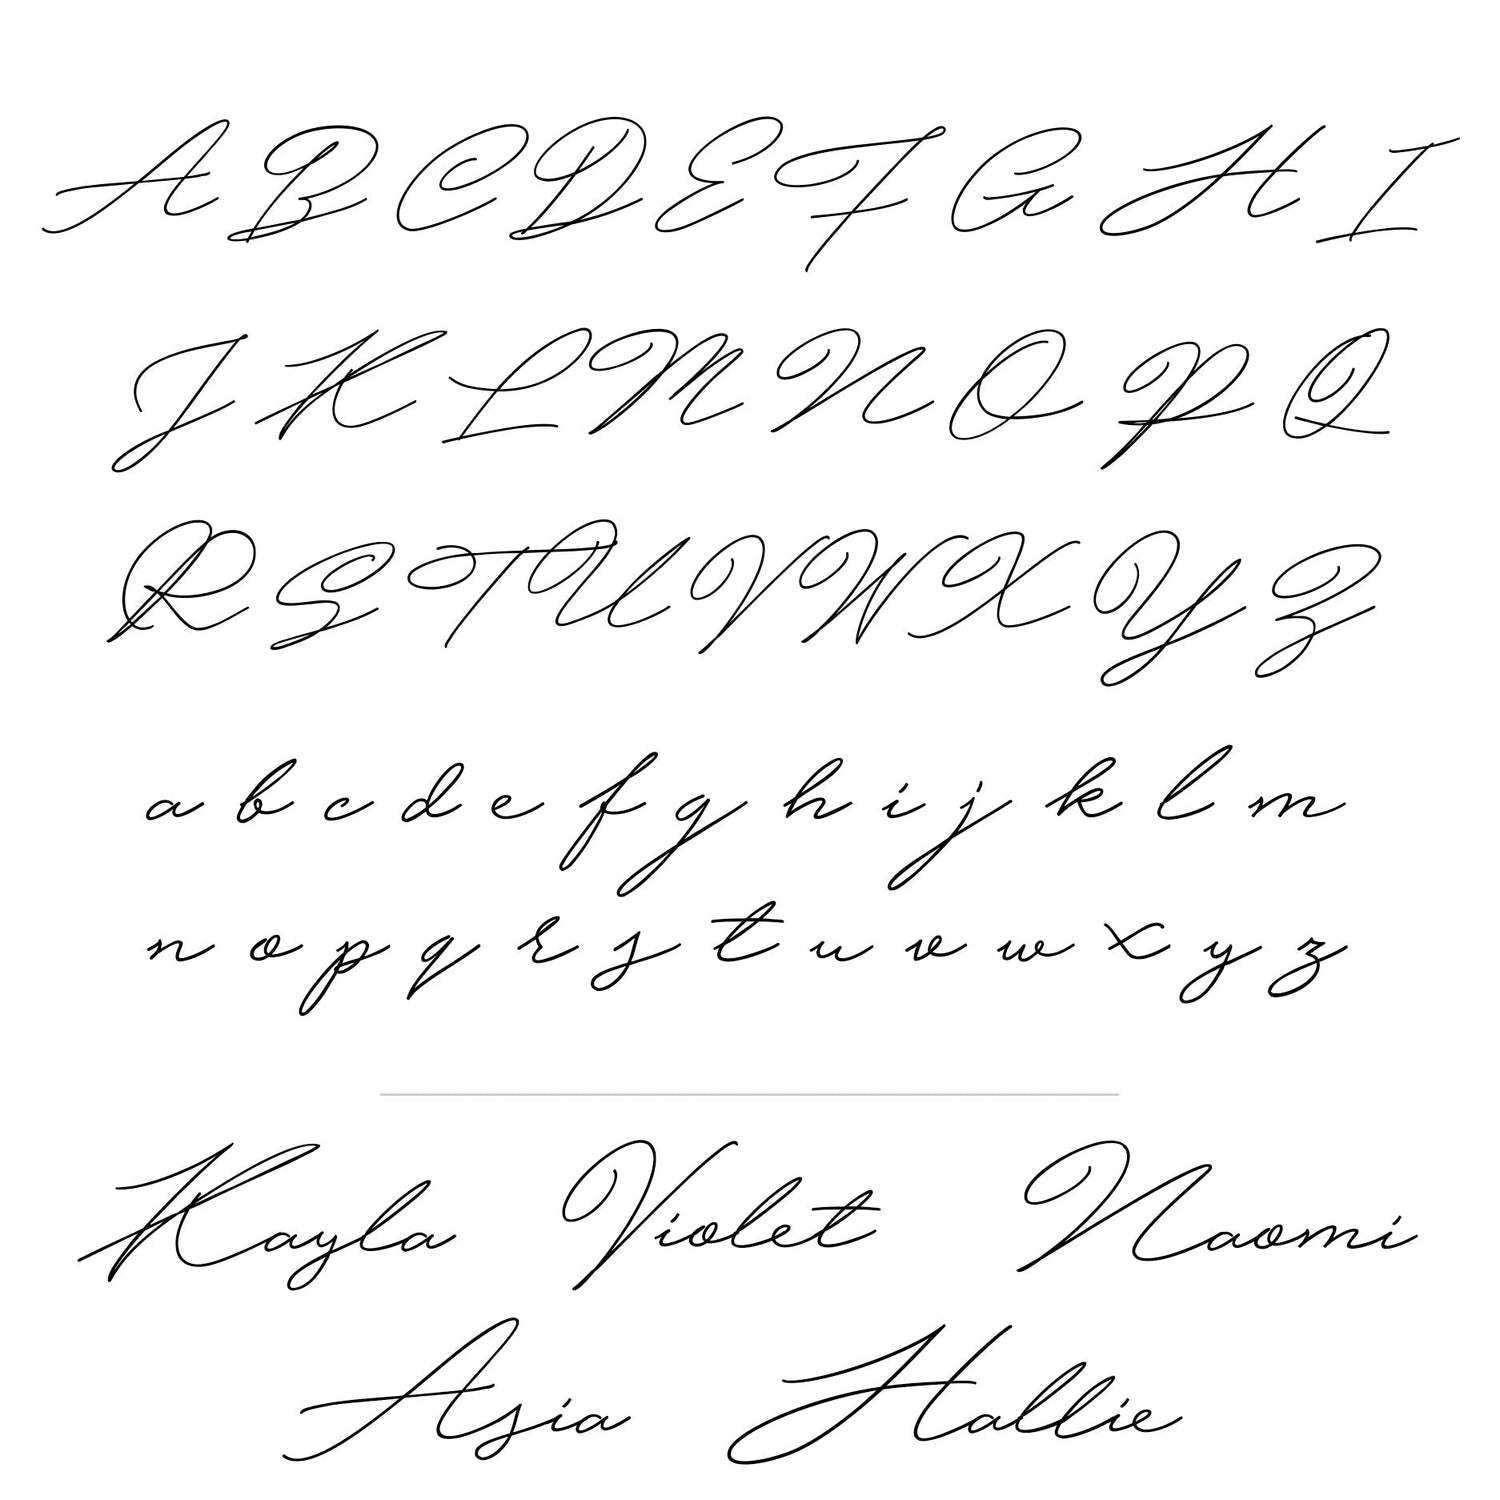 A B C D E F G H I
J K L M N O P Q
R S T U V W X Y Z
a b c d e f g h i j k l m
n o p q r s t u v w x y z
Kayla Violet Naomi
Asia Hallie